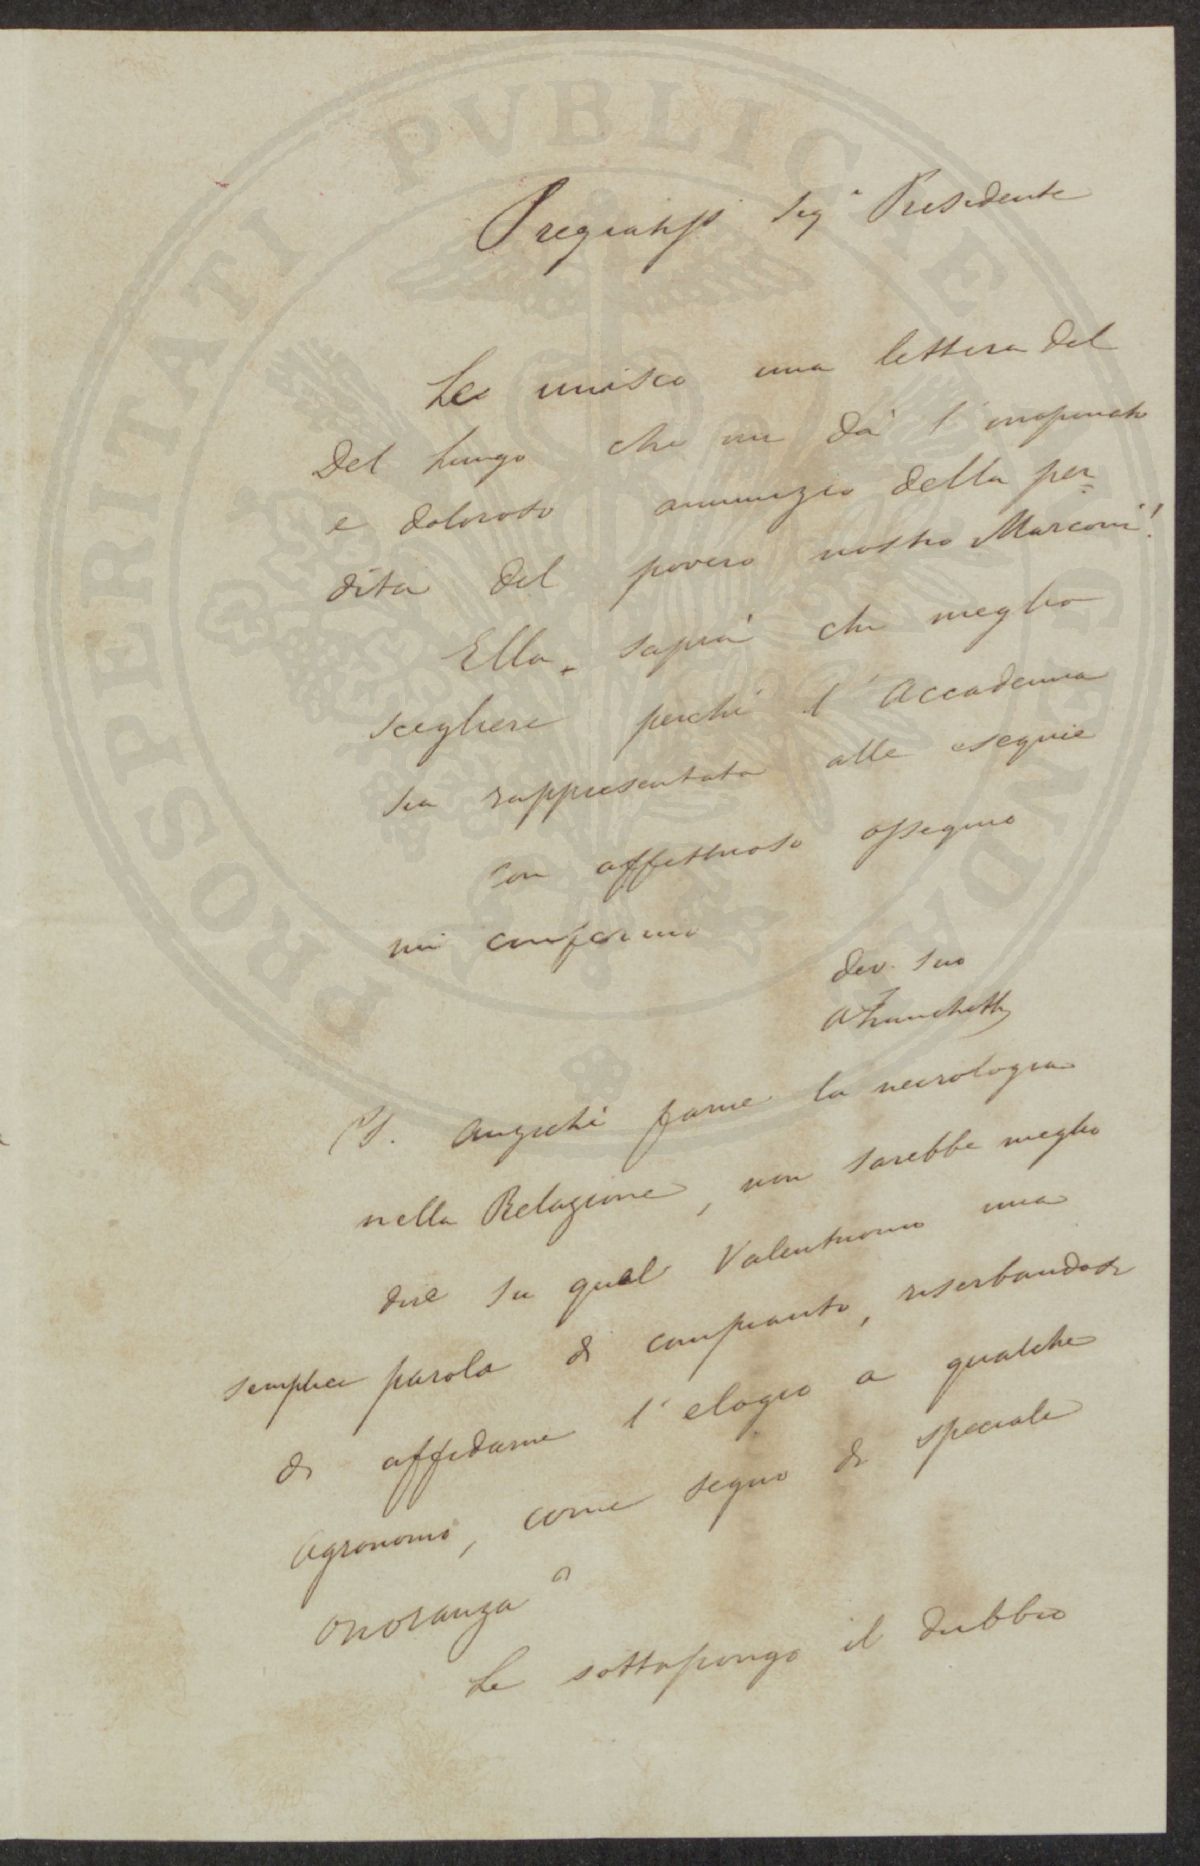 PROSPERITATI PVBLICAE AVGENDAE
Pregiatiss Sigr Presidente
Le unisco una lettera del
Del Lungo che mi dà l'inaspettato
e doloroso annunzio della per=
dita del povero nostro Marconi!
Ella saprà chi meglio
scegliere perché l'Accademia
sia rappresentata alle esequie
Con affettuoso ossequio
mi confermo
dev. suo
AFranchetti
PS. Anziché farne la necrologia
nella Relazione, non sarebbe meglio
dire su quel Valentuomo una
semplice parola di compianto, riserbandosi
di affidarne l'elogio a qualche
Agronomo, come segno di speciale
onoranza?
Le sottopongo il dubbio